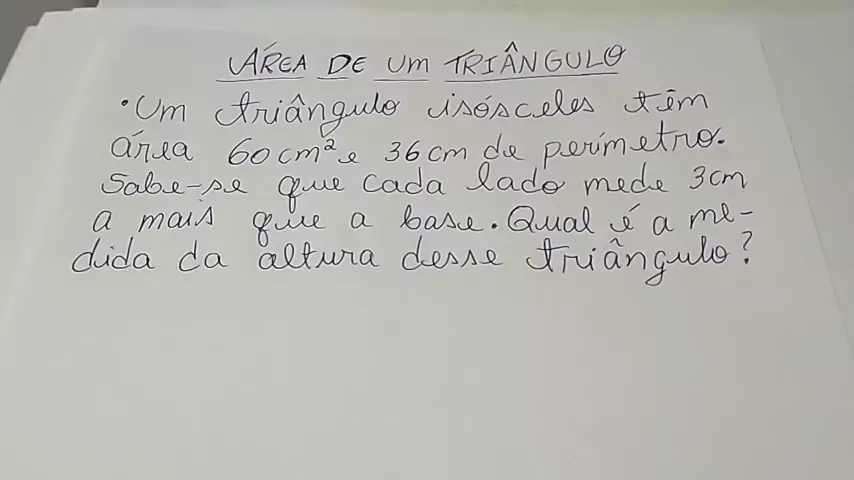 ÁREA DE UM TRIÂNGULO
• Um triângulo isósceles têm
área 60cm² e 36cm de perímetro.
Sabe-se que cada lado mede 3cm
a mais que a base. Qual é a me-
dida da altura desse triângulo?